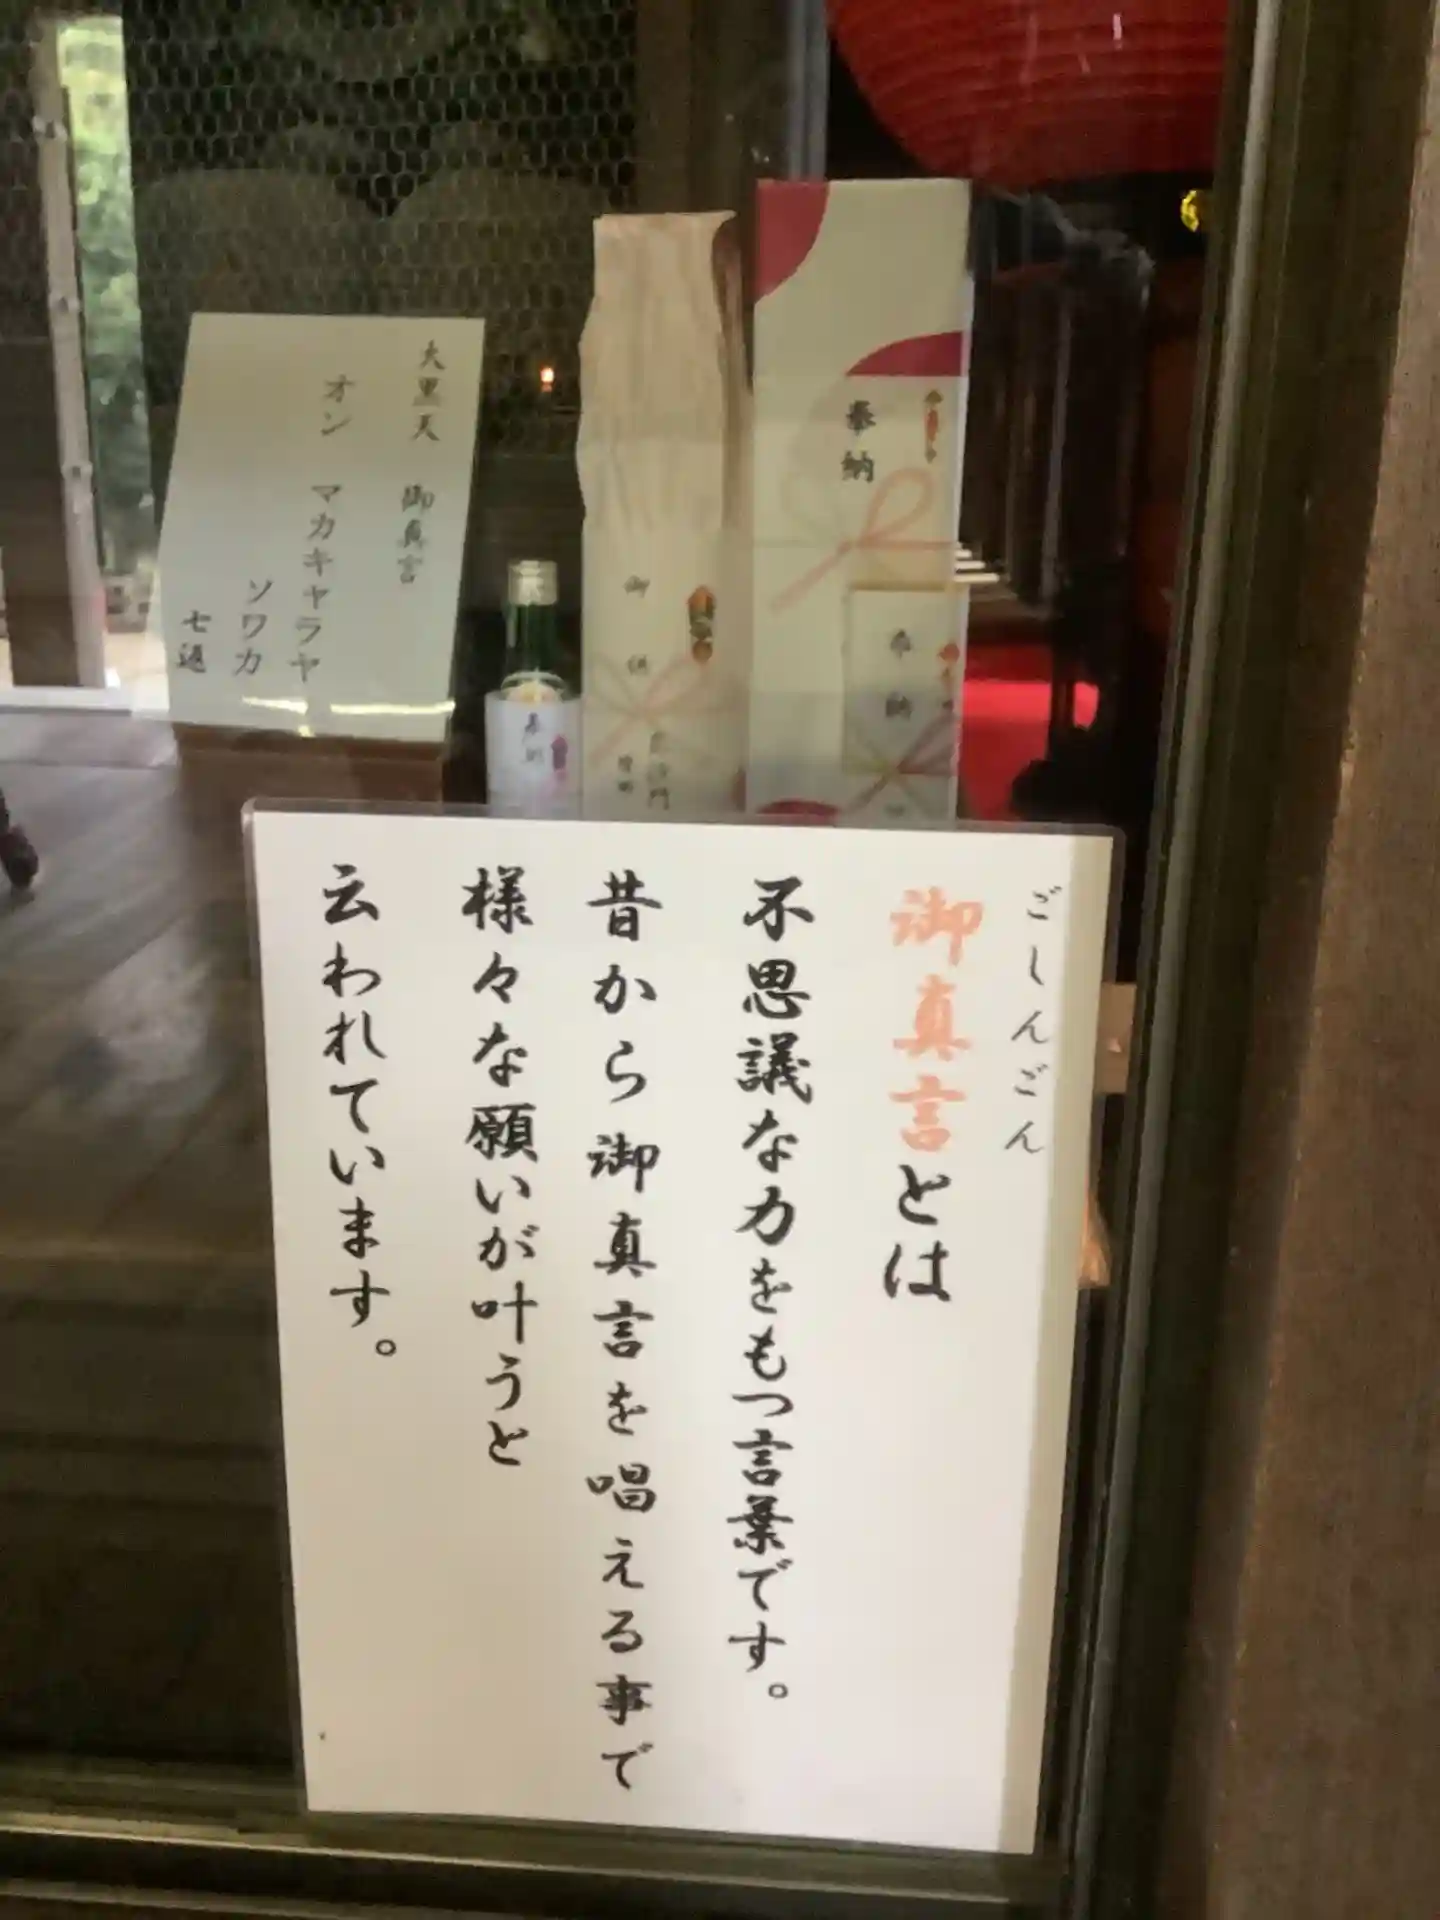 ごしんごん
御真言とは
不思議な力をもつ言葉です。
昔から御真言を唱える事で
様々な願いが叶うと
云われています。
大黒天 御真言
オン マカキャラヤ
ソワカ
七遍
奉納
御供
奉納
奉納